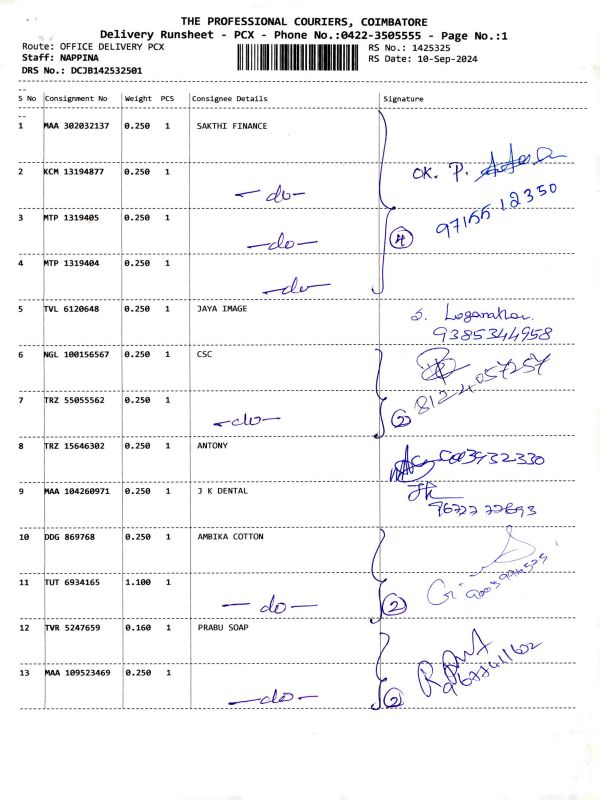 THE PROFESSIONAL COURIERS, COIMBATORE
Delivery Runsheet - PCX - Phone No.:0422-3505555 - Page No.:1
Route: OFFICE DELIVERY PCX RS No.: 1425325
Staff: NAPPINA RS Date: 10-Sep-2024
DRS No.: DCJB142532501
S No Consignment No Weight PCS Consignee Details Signature
1 MAA 302032137 0.250 1 SAKTHI FINANCE
2 KCM 13194877 0.250 1 -do- OK. P.
97155 12350
3 MTP 1319405 0.250 1 -do- 4
4 MTP 1319404 0.250 1 -do-
5 TVL 6120648 0.250 1 JAYA IMAGE S. Loganathan.
9385344958
6 NGL 100156567 0.250 1 CSC
8124057257
7 TRZ 55055562 0.250 1 -do- 2
8 TRZ 15646302 0.250 1 ANTONY
9 MAA 104260971 0.250 1 J K DENTAL JK
96722 77693
10 DDG 869768 0.250 1 AMBIKA COTTON
11 TUT 6934165 1.100 1 -do- 2
12 TVR 5247659 0.160 1 PRABU SOAP
13 MAA 109523469 0.250 1 -do- 2